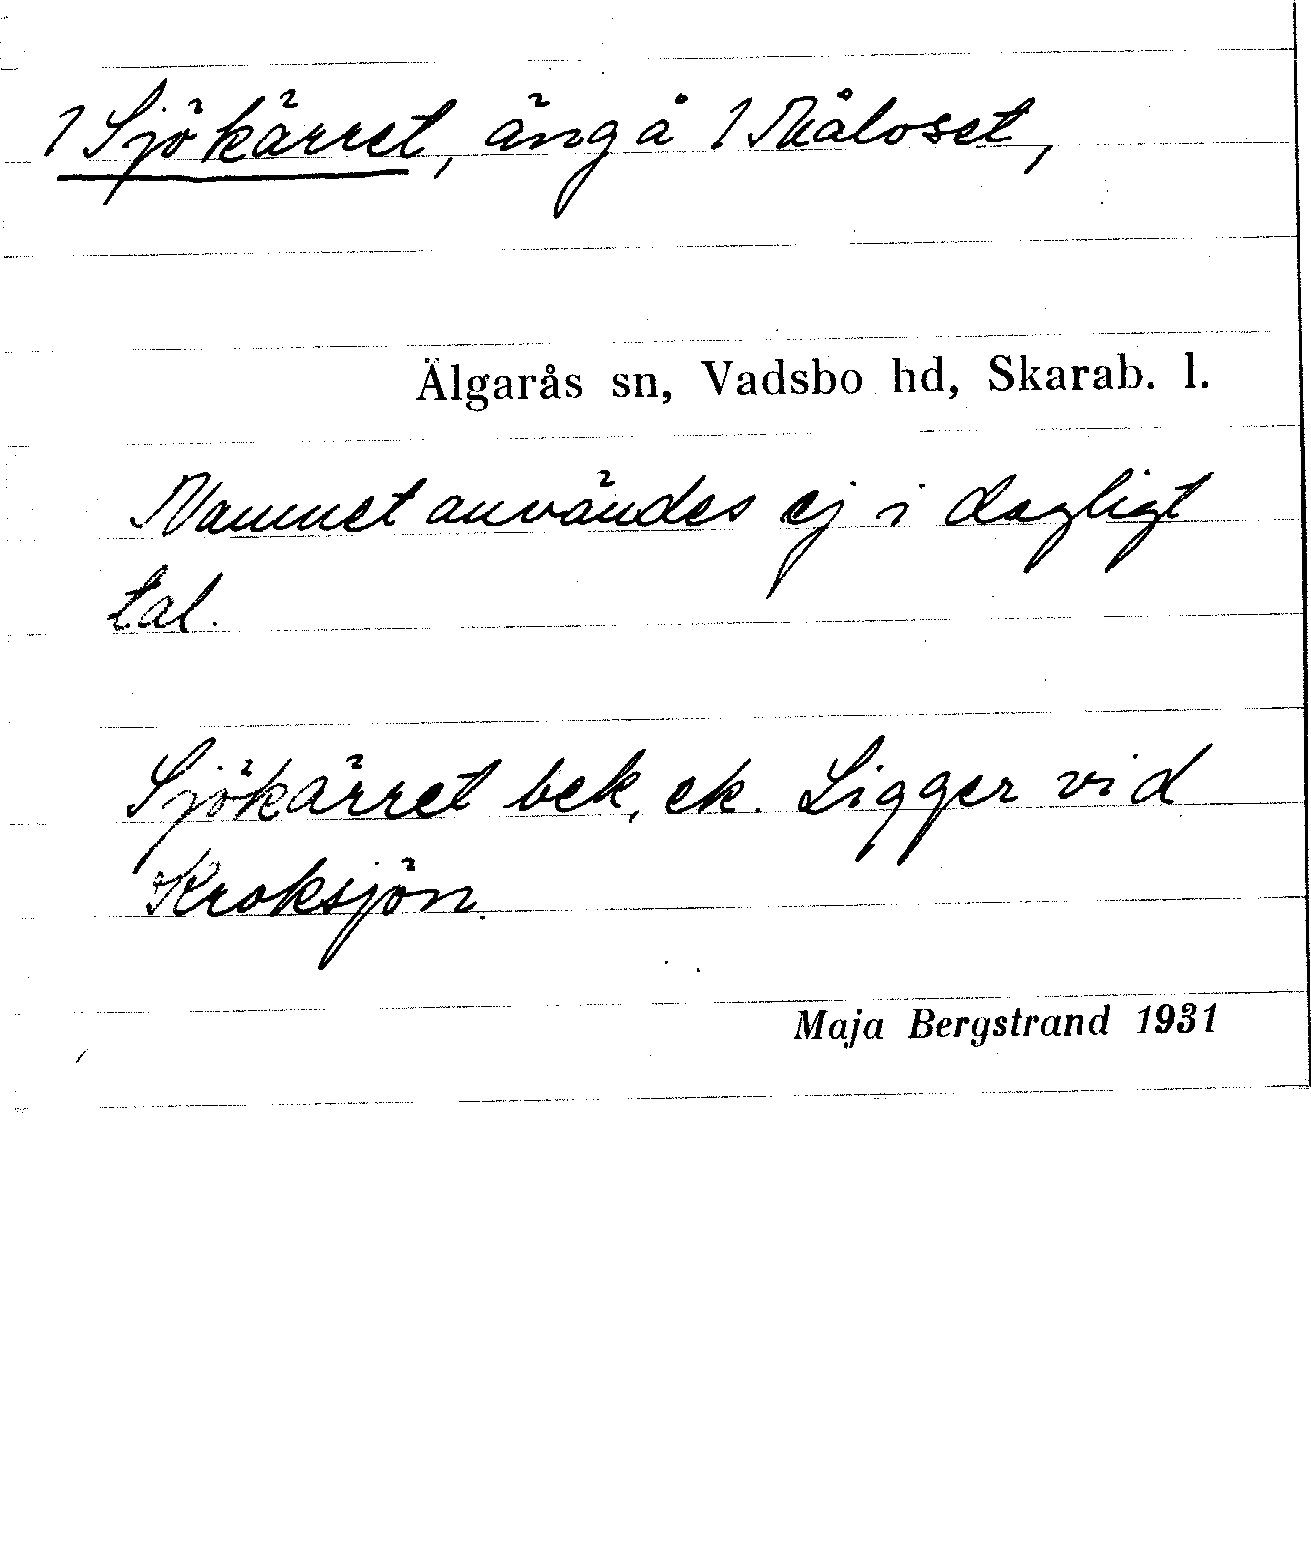 1 Sjökärret, äng å 1 Måloset,
Älgarås sn, Vadsbo hd, Skarab. l.
Namnet användes ej i dagligt
tal.
Sjökärret bek, ek. Ligger vid
Kroksjön.
Maja Bergstrand 1931